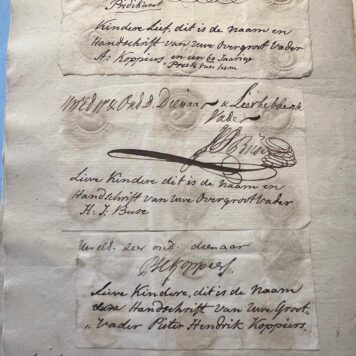 Predikant
Kindere Lief, dit is de naam en
Handschrift van Uwe Overgroot Vader
H: Koppiers en een 60 Jaarige
Preek van hem
Ond. d. Dienaar & Liefhebbende
Vader
H J Buse
Lieve Kindere dit is de naam en
Handschrift van Uwe Overgroot Vader
H: J: Buse
Uwell. zeer ond. dienaar
PH Koppiers
Lieve Kindere, dit is de naam
Handschrift van Uwe Groot,
„ Vader Pieter Hendrik Koppiers.